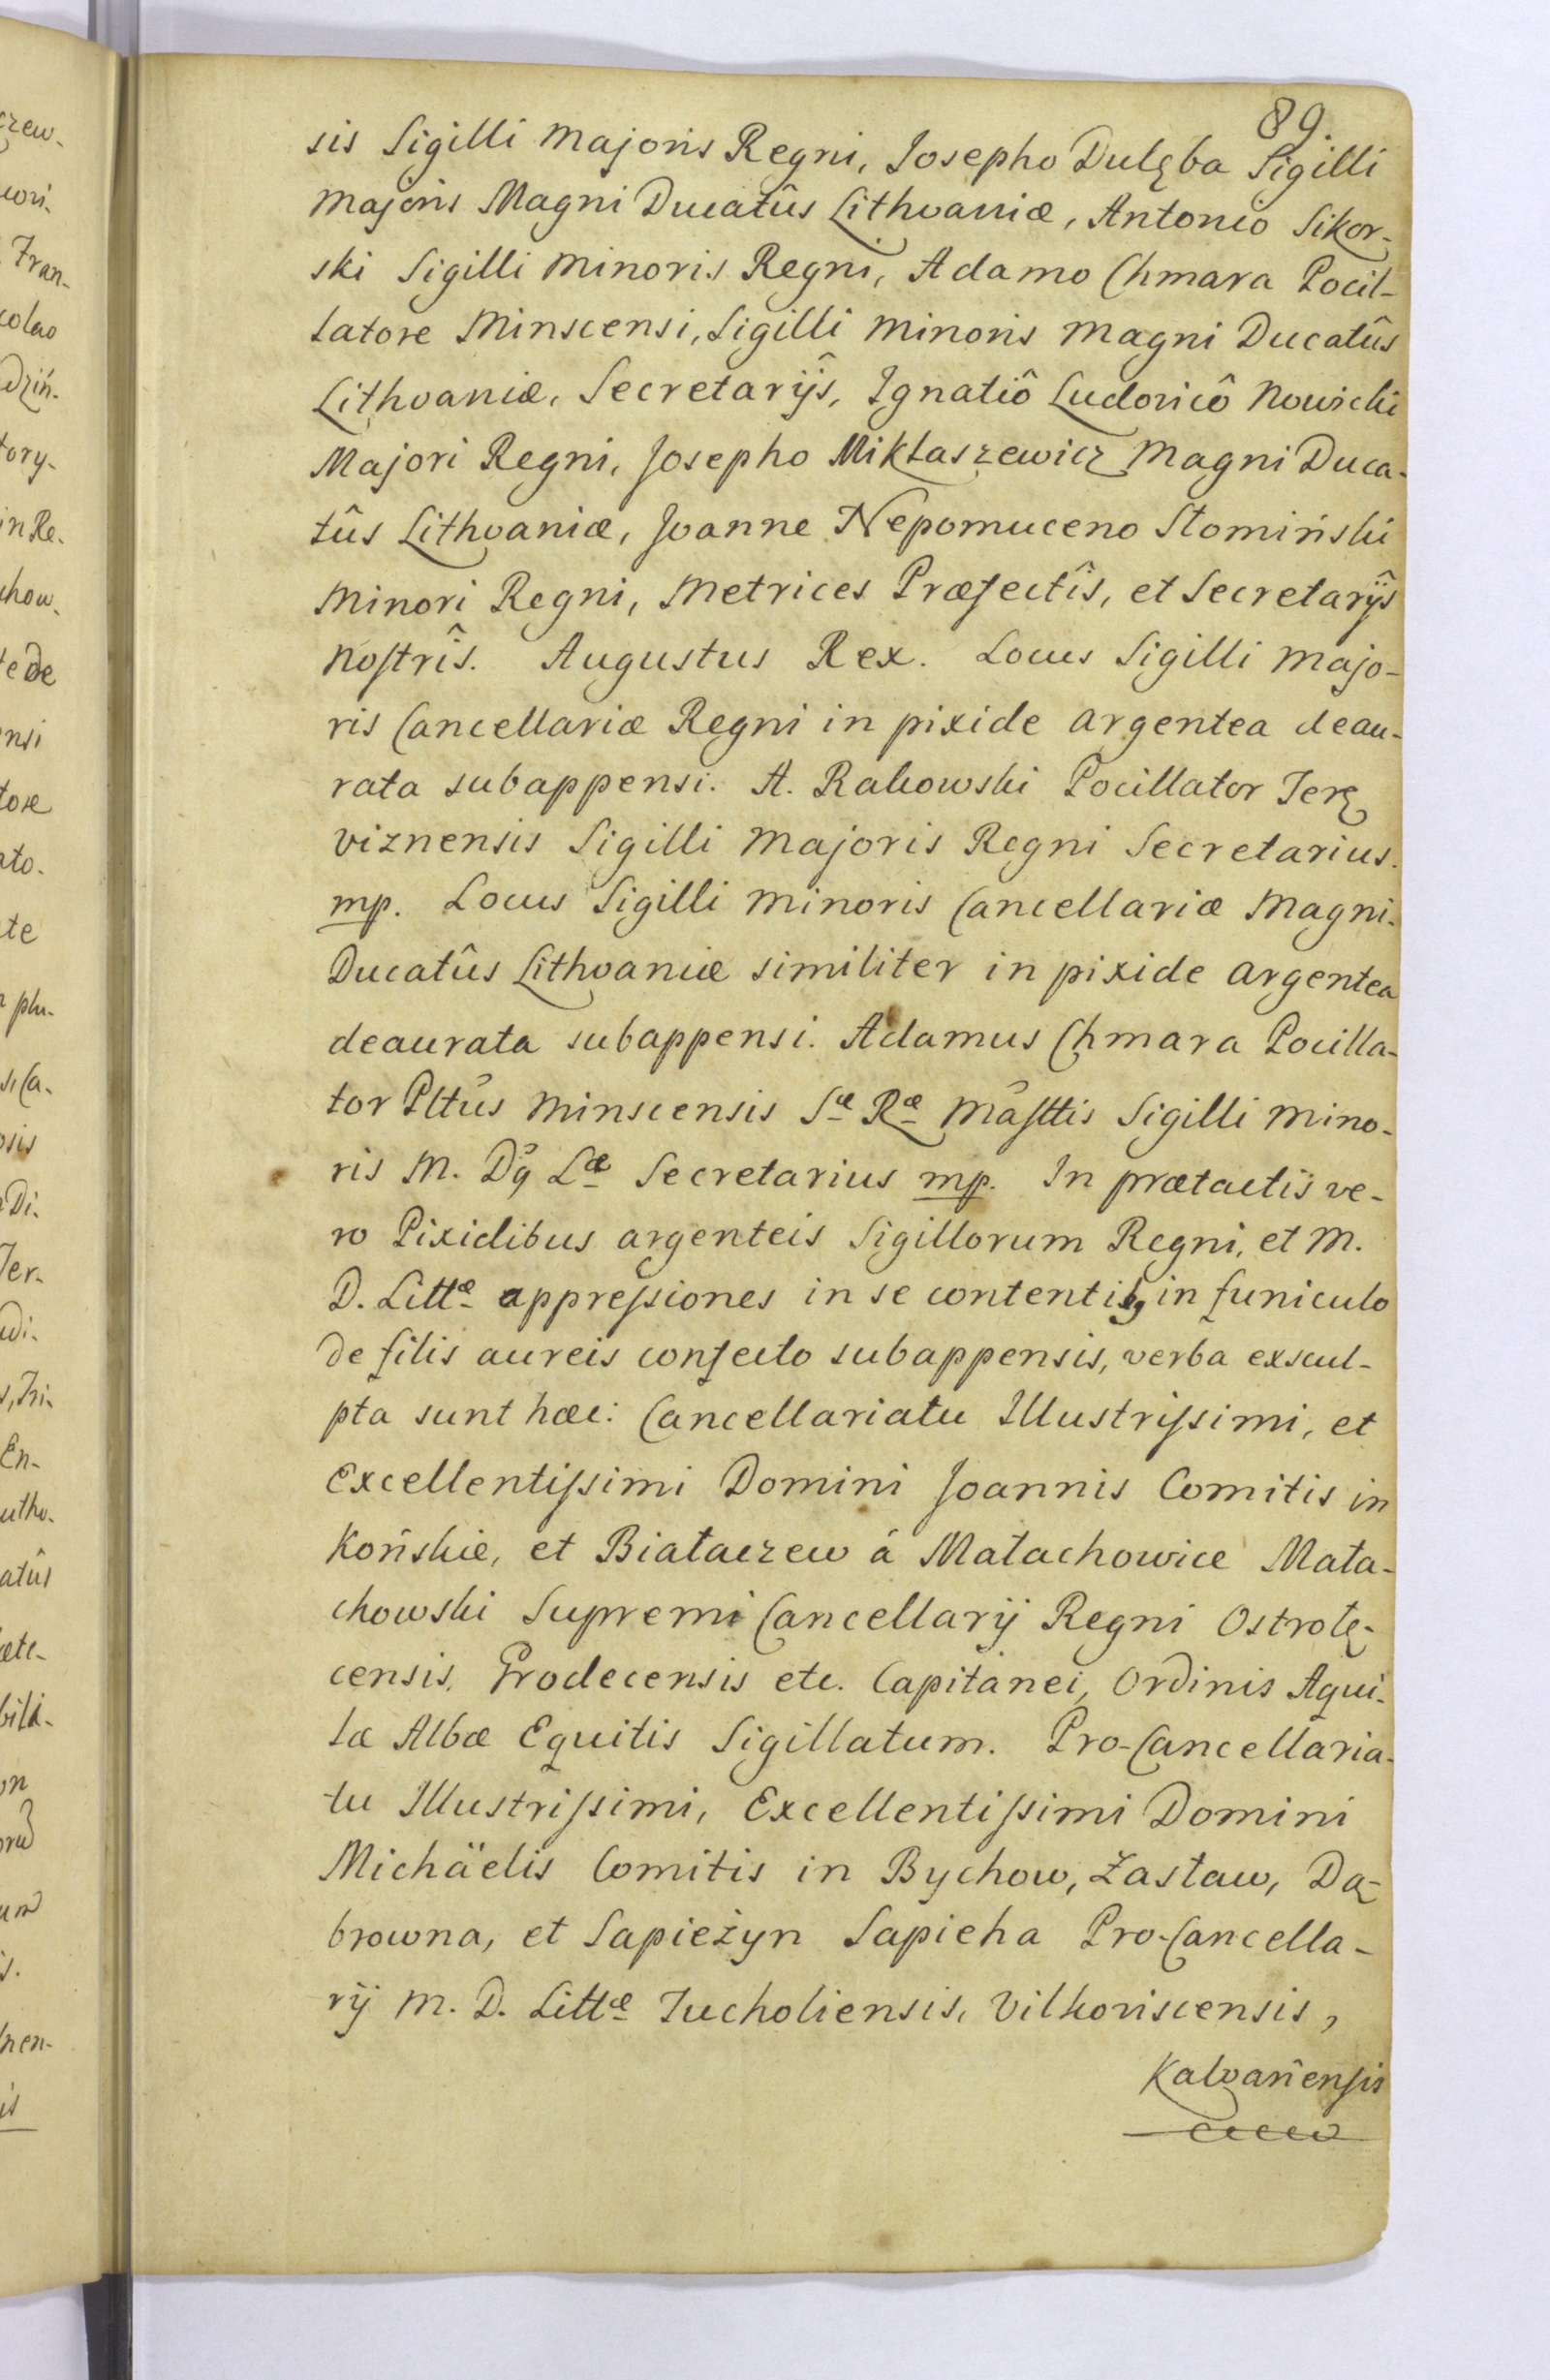 89.
sis Sigilli Majoris Regni, Josepho Dulęba Sigilli
Majoris Magni Ducatûs Lithvaniæ, Antonio Sikor-
ski Sigilli Minoris Regni, Adamo Chmara Pocil-
latore Minscensi, Sigilli Minoris Magni Ducatûs
Lithvaniæ, Secretarijŝ, Ignatiô Ludovicô Nowicki
Majori Regni, Josepho Mikłaszewicz Magni Duca-
tûs Lithvaniæ, Joanne Nepomuceno Słomiński
Minori Regni, Metrices Præfectîs, et Secretarijŝ
Nostrîs. Augustus Rex. Locus Sigilli Majo-
ris Cancellariæ Regni in pixide argentea deau-
rata subappensi. A. Rakowski Pocillator Terę
viznensis Sigilli Majoris Regni Secretarius.
mp. Locus Sigilli Minoris Cancellariæ Magni-
Ducatûs Lithvaniæ similiter in pixide argentea
deaurata subappensi. Adamus Chmara Pocilla-
tor Plttûs Minscensis Sæ Ræ Mâsttis Sigilli Mino-
ris M. Dq̃ Læ Secretarius mp. In prætactis ve-
ro Pixidibus argenteis Sigillorum Regni, et M.
D. Littæ appressiones in se contentis, in funiculo
de filis aureis confecto subappensis, verba exscul-
pta sunt hæc: Cancellariatu Illustrissimi, et
Excellentissimi Domini Joannis Comitis in
Końskie, et Białaczew á Małachowice Mała-
chowski Supremi Cancellarij Regni Ostrołę-
censis, Grodecensis etc. Capitanei, Ordinis Aqui-
læ Albæ Equitis Sigillatum. Pro-Cancellaria-
tu Illustrissimi, Excellentissimi Domini
Michäelis Comitis in Bychow, Zasław, Dą-
browna, et Sapieżyn Sapieha Pro-Cancella-
rij M. D. Littæ Tucholiensis, Vilkoviscensis,
Kalvariensis